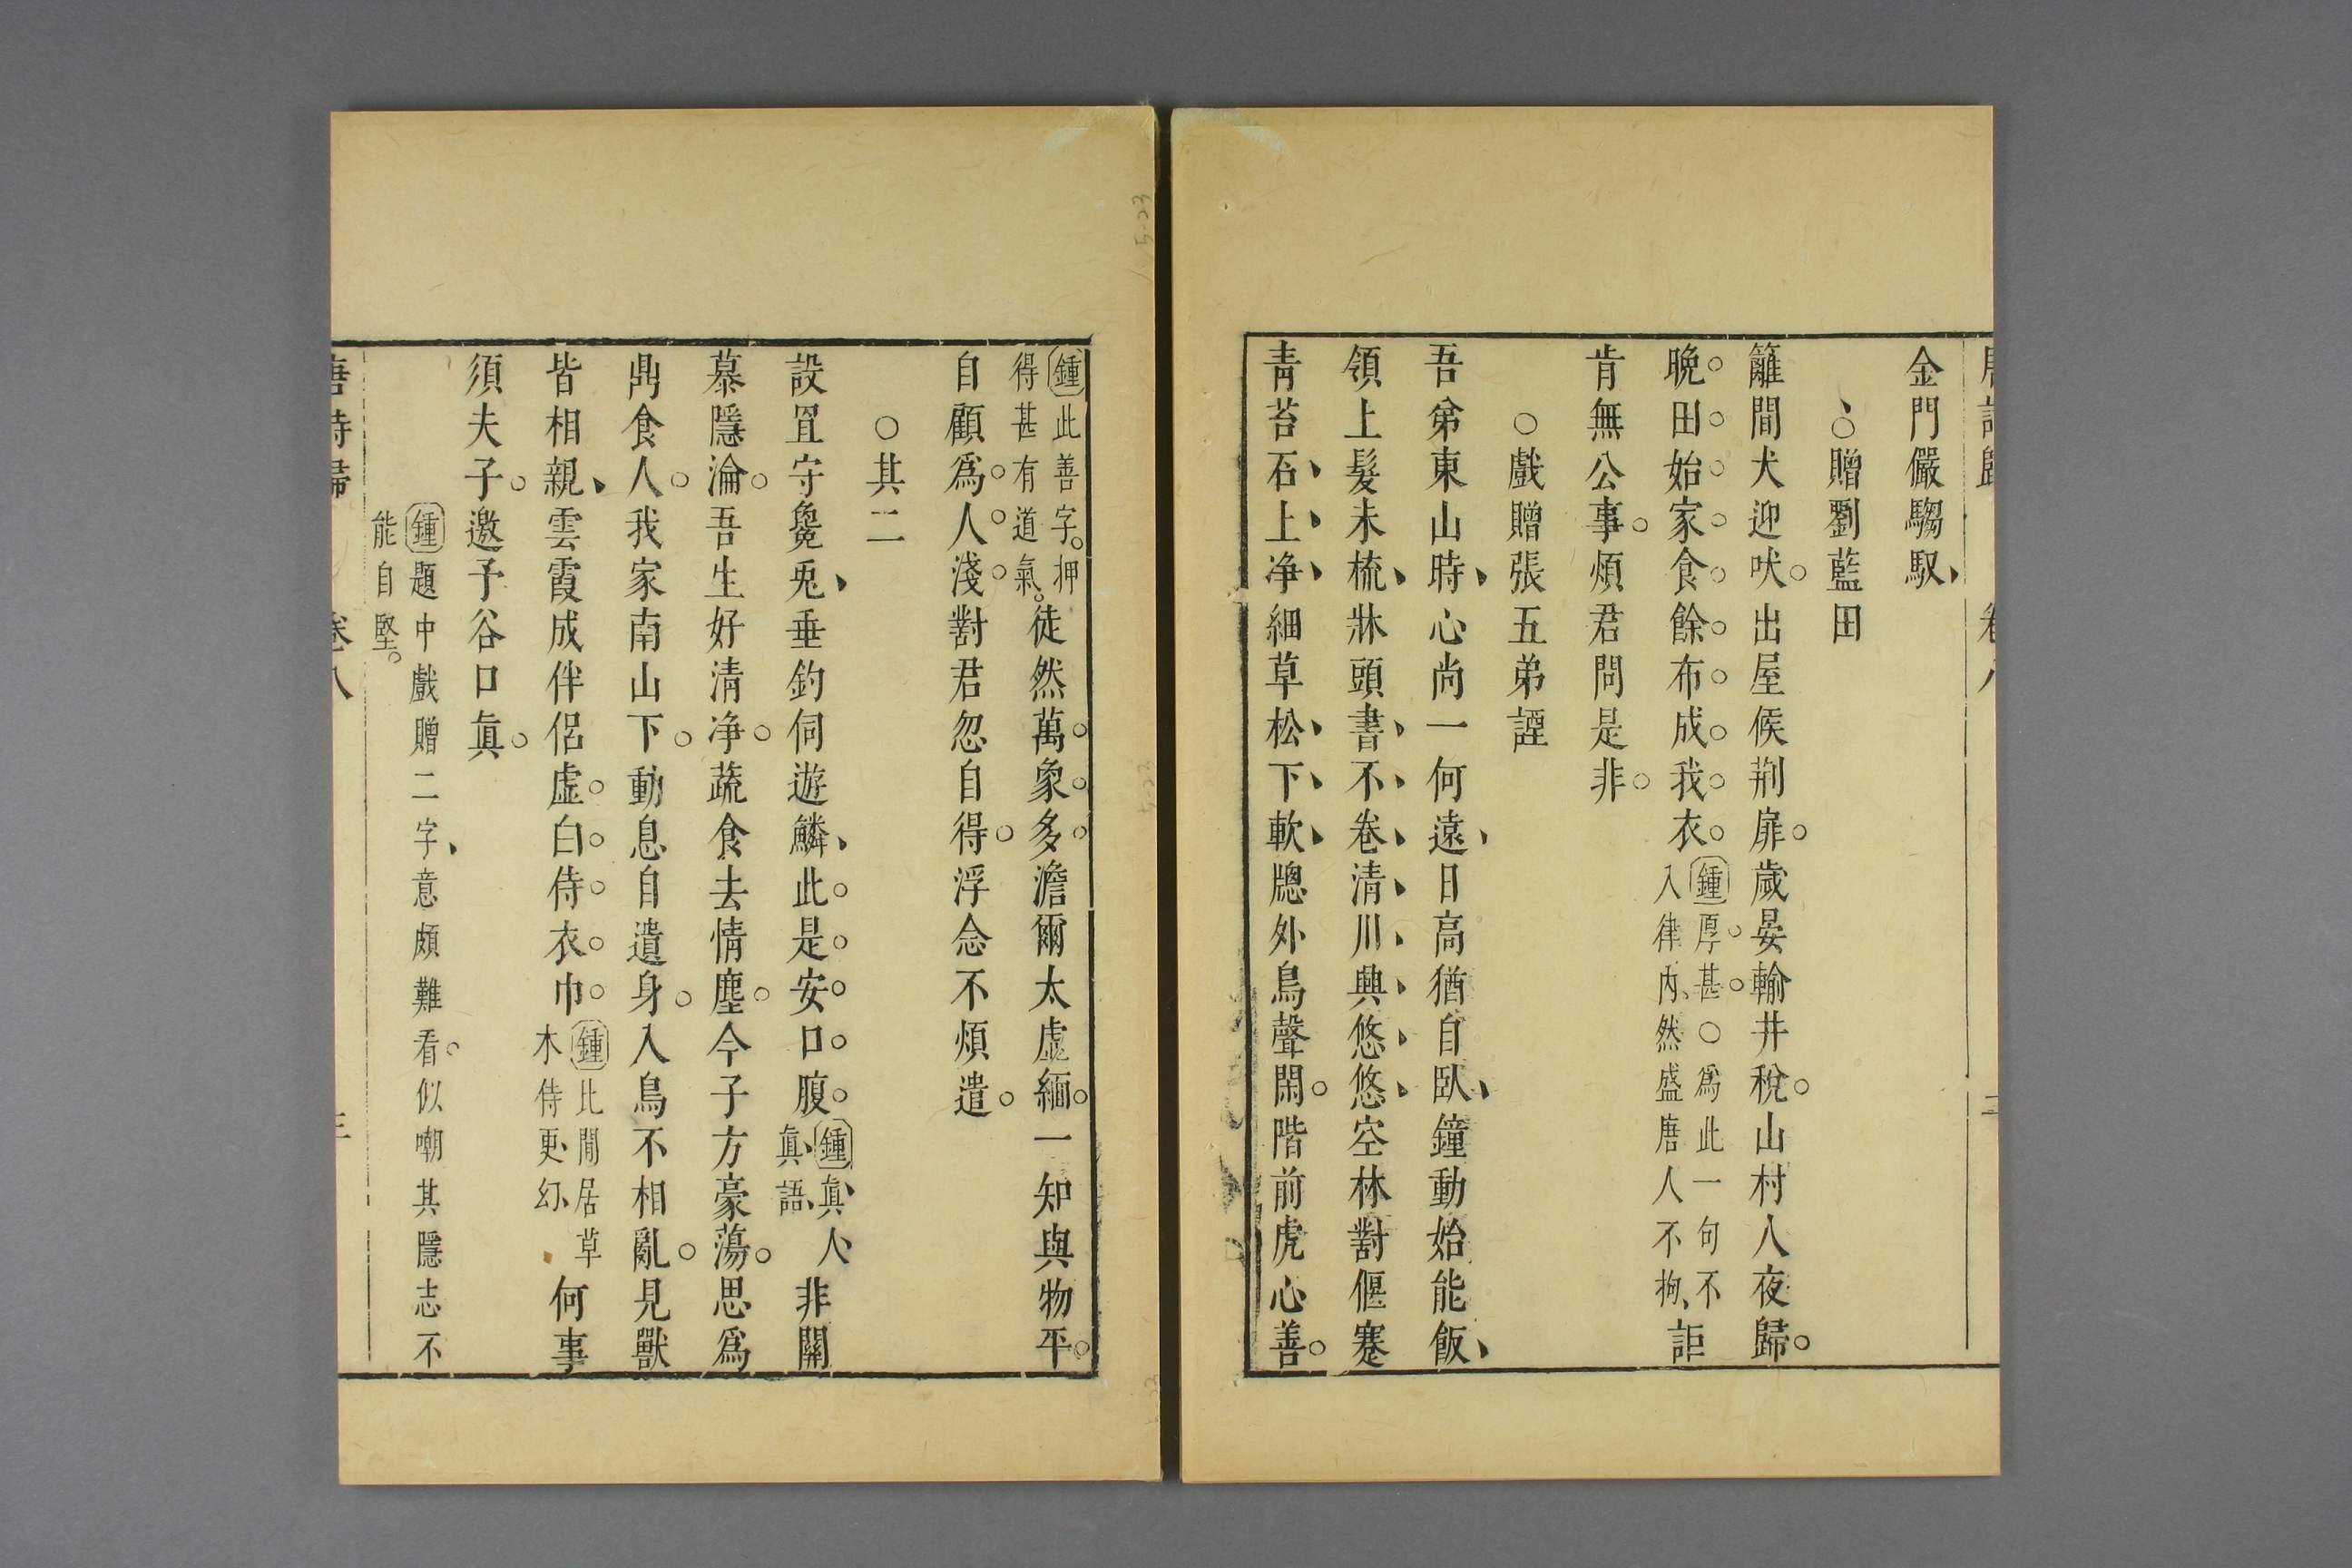 金門儼騶馭
○贈劉藍田
籬間犬迎吠出屋候荆扉歲晏輸井稅山村人夜歸
晚田始家食餘布成我衣鍾厚甚○爲此一句不入律內然盛唐人不拘詎
肯無公事煩君問是非
○戲贈張五弟諲
吾弟東山時心尚一何遠日高猶自臥鐘動始能飯
領上髮未梳牀頭書不卷清川興悠悠空林對偃蹇
青苔石上净細草松下軟牕外鳥聲閑階前虎心善
鍾此善字押得甚有道氣徒然萬象多澹爾太虛緬一知與物平
自顧爲人淺對君忽自得浮念不煩遣
○其二
設罝守毚兎垂釣伺遊鱗此是安口腹鍾眞人眞語非關
慕隱淪吾生好清净蔬食去情塵今子方豪蕩思爲
鼎食人我家南山下動息自遺身入鳥不相亂見獸
皆相親雲霞成伴侶虛白侍衣巾鍾此間居草木侍更幻何事
須夫子邀予谷口眞
鍾題中戲贈二字意頗難看似嘲其隱志不
能自堅
唐詩歸 卷八